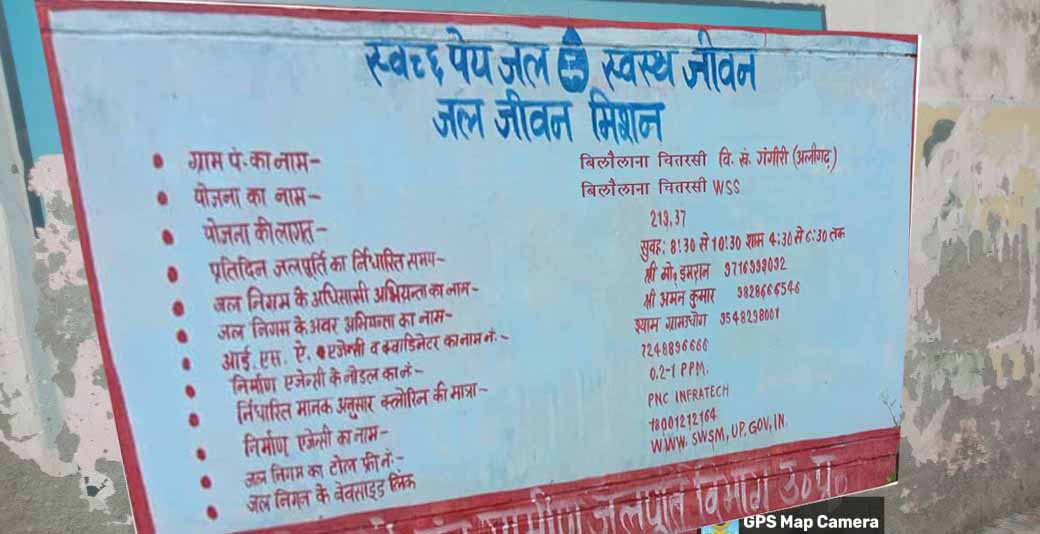 स्वच्छ पेय जल स्वस्थ जीवन
जल जीवन मिशन
ग्राम पं. का नाम- बिलौलाना चितरसी वि. खं. गंगीरी (अलीगढ़)
योजना का नाम- बिलौलाना चितरसी WSS
योजना की लागत- 219.37
प्रतिदिन जलपूर्ति का निर्धारित समय- सुवह: 8:30 से 10:30 शाम 4:30 से 6:30 तक
जल निगम के अधिसासी अभियन्ता का नाम- श्री मो. इमरान 9716998092
जल निगम के अवर अभियन्ता का नाम- श्री अमन कुमार 9828666546
आई. एस. ऐ. एजेन्सी व क्वाडिनेटर का नाम नं.- श्याम ग्रामउधोग 9548298001
निर्माण एजेन्सी के नोडल का नं- 7248896666
निर्धारित मानक अनुसार क्लोरिन की मात्रा- 0.2-1 PPM.
निर्माण एजेन्सी का नाम- PNC INFRATECH
जल निगम का टोल फ्री नं.- 18001212164
जल निगम के वेवसाइड लिंक WWW. SWSM, UP. GOV, IN.
ग्रामीण जलपूर्ति विभाग उ०प्र०
GPS Map Camera